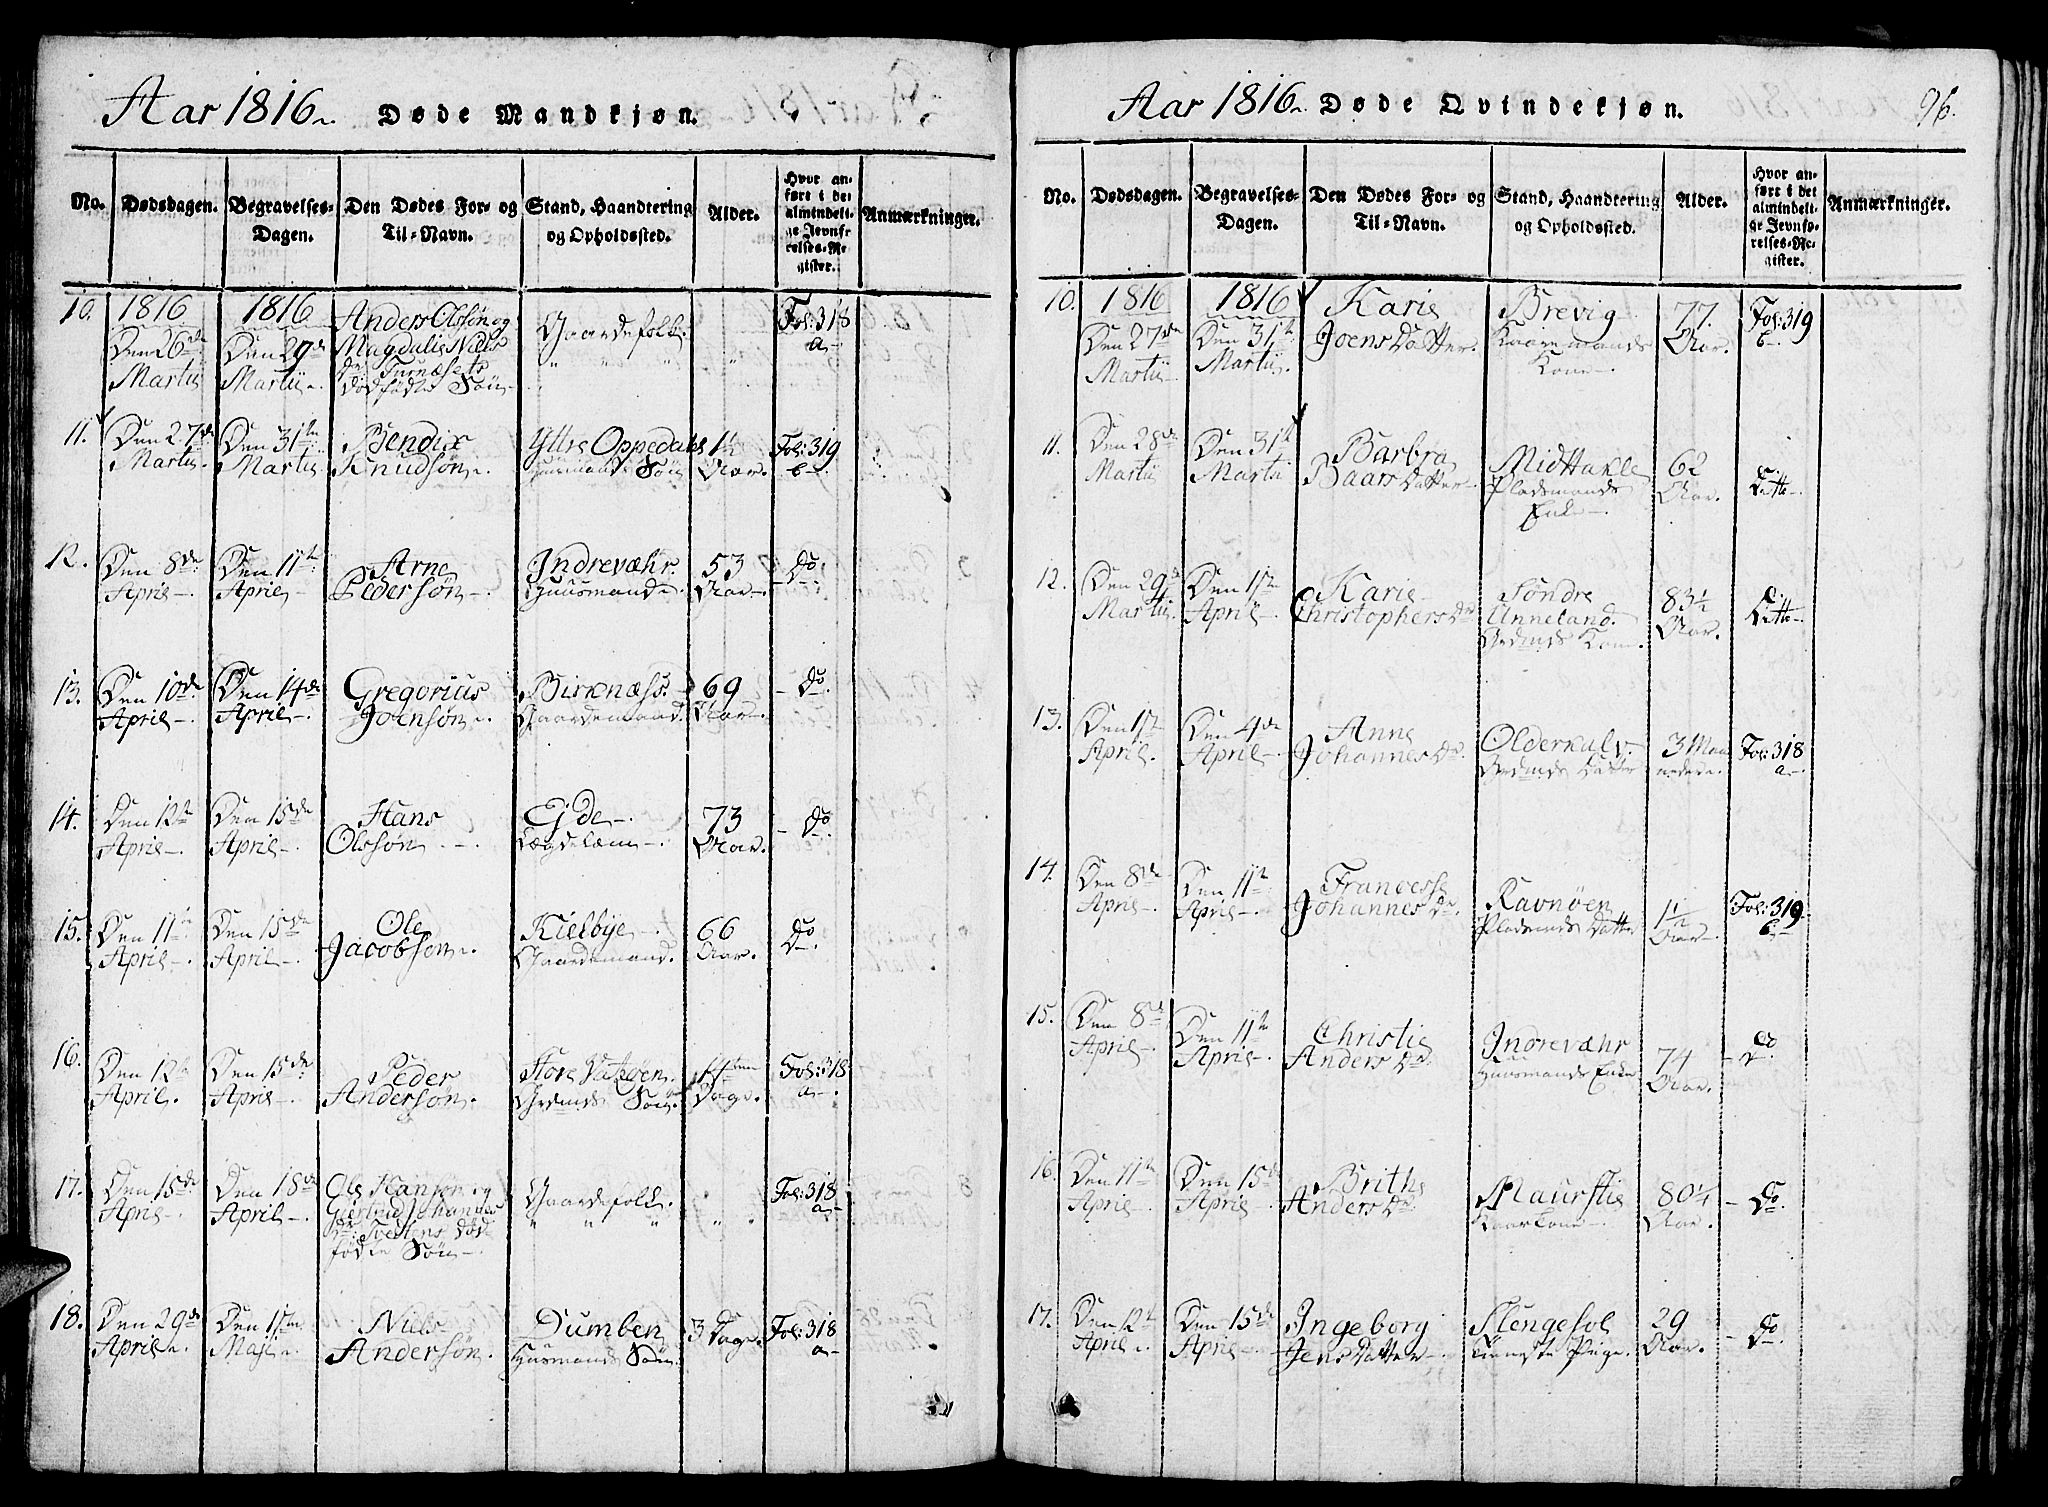 Aar 1816 Døde Mandkjøn.
No. Dødsdagen. Begravelses-Dagen. Den Dødes For- og Til-Navn. Stand, Haandtering og Opholdssted. Alder. Hvor anført i det almindelige Jevnførelses-Register. Anmærkninger.
10. 1816 1816 Anders Olssøn og
Den 26de Den 29de Magdalis Niels Gaardefolk Fol: 318
Martii Martii dr Furnæsets a
dødfødte Søn
11. Den 27de Den 31te Bendix Yttre Oppedals 1½ Fol: 319
Martii Martii Knudsøn Huusmands Søn Aar b
12. Den 8de Den 11te Arne Indrevæhr 53 Do
April April Pedersøn Huusmand Aar
13. Den 10de Den 14de Gregorius Birknæss 69 Do
April April Joensøn Gaardemand Aar
14. Den 12te Den 15de Hans Ejde 73 Do
April April Olssøn Lægdelæm Aar
15. Den 11te Den 15de Ole Kielbye 66 Do
April April Jacobsøn Gaardemand Aar
16. Den 12te Den 15de Peder Store 14ten Fol: 318
April April Andersøn Søn Dage a
17. Den 15de Den 18de Ole Hansen og Gaardefolk Fol: 318
April April Giertrud Johannes a
dr Tveitens død
fødte Søn
18. Den 29de Den 1ste Niels Dumben 3 Dage Fol: 318
April Maji Andersøn Huusmands Søn a
Aar 1816 Døde Qvindekjøn. 96.
No. Dødsdagen. Begravelses-Dagen. Den Dødes For- og Til-Navn. Stand, Haandtering og Opholdssted. Alder. Hvor anført i det almindelige Jevnførelses-Register. Anmærkninger.
10. 1816 1816 Karie Brevig 77 Fol: 319
Den 27de Den 31te Joens Datter Kaaremands Aar b
Martii Martii Kone
11. Den 28de Den 31te Barbra Midttakle 62 Ditto
Martii Martii Baars Datter Pladsmands Aar
Enke
12. Den 29de Den 1ste Karie Søndre 83½ Ditto
Martii April Christophers Dr Unneland Aar
Grdmds Kone
13. Den 1ste Den 4de Anne Olderkalv 3 Maa Fol: 318
April April Johannes Dr Grdmds Datter neder a
14. Den 8de Den 11te Francesse Ravnøen 1½ Fol: 319
April April Johannes Dr Pladsmds Datter Aar b
15. Den 8de Den 11te Christie Indrevæhr 74 Do
April April Anders Dr Huusmands Enke Aar
16. Den 11te Den 15de Brithe Maurstie 80¼ Do
April April Anders Dr Kaarkone Aar
17. Den 12te Den 15de Ingeborg Stengesol 29 Do
April April Jens Datter Tieneste Pige Aar